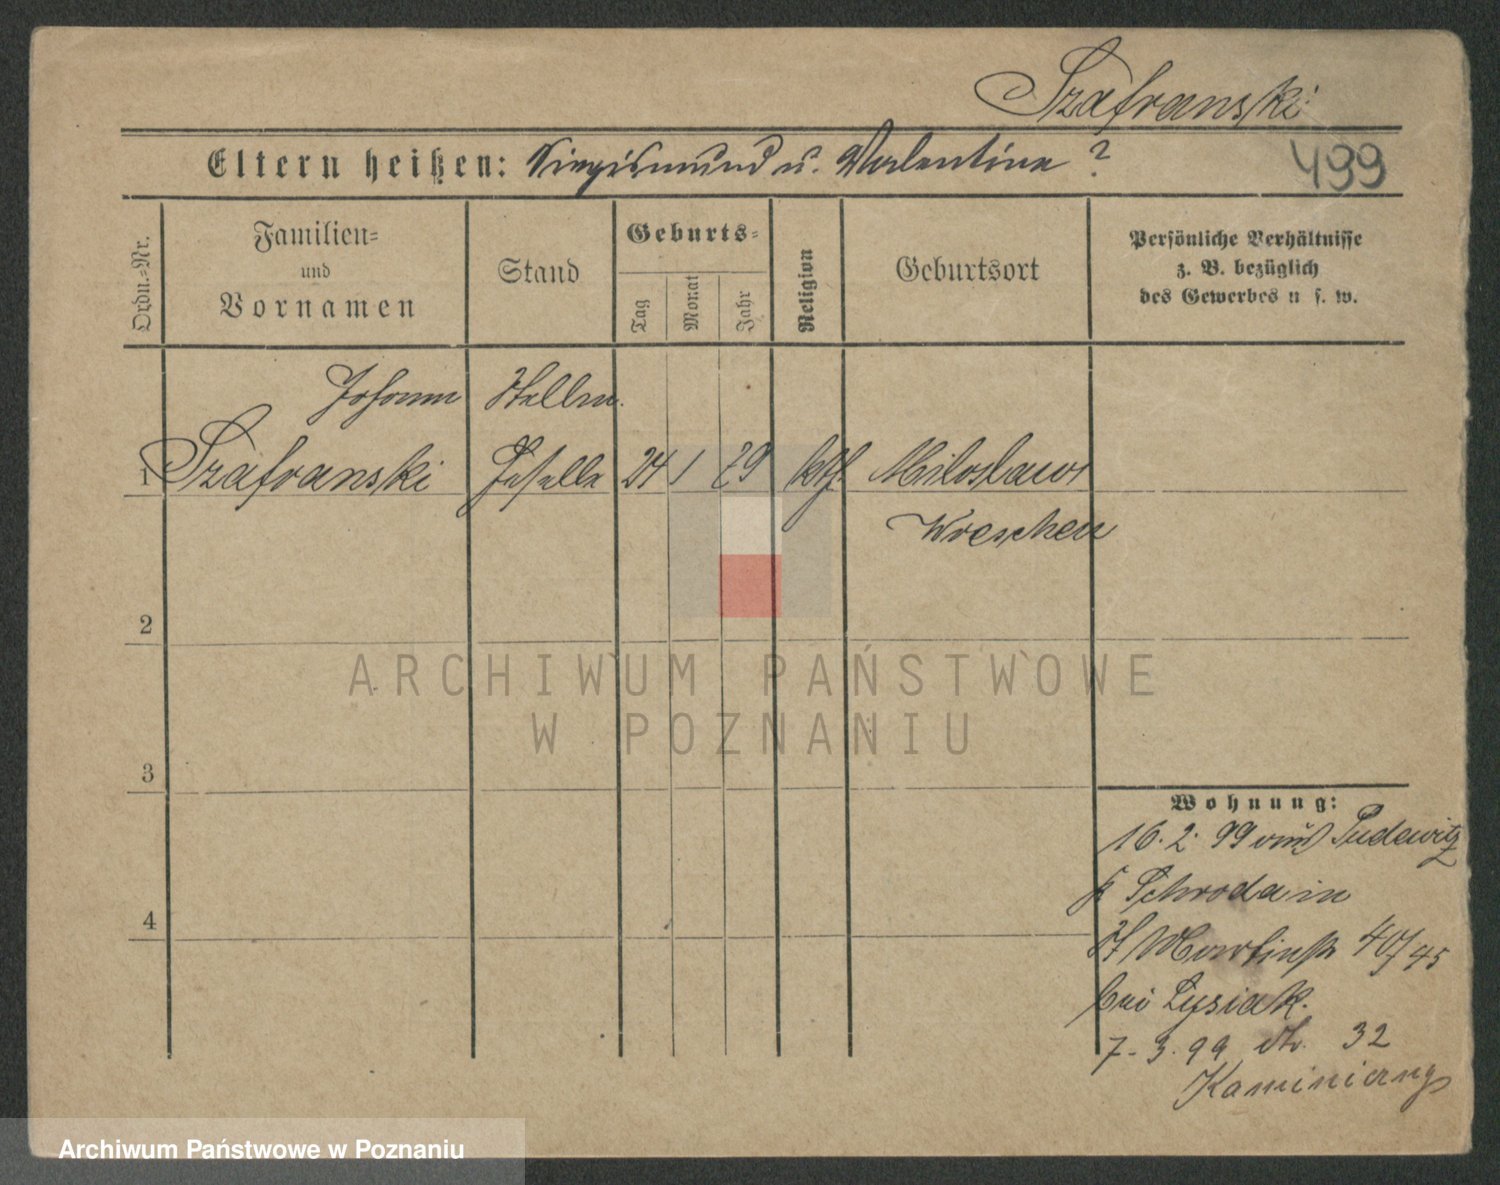 Szafranski
Eltern heißen: Siegismund u. Valentine ?
499
Ordn.=Nr.
Familien=
und
Vornamen
Stand
Geburts=
Tag
Monat
Jahr
Religion
Geburtsort
Persönliche Verhältnisse
z. B. bezüglich
des Gewerbes u s. w.
Johann Stellm.
1 Szafranski Geselle 24 1 79 kth. Miloslaw
Wreschen
2
3
4
Wohnung:
16. 2. 99 aus Pudewitz
K Schroda in
St Martinstr 40/45
bei Lysiak.
7. 3. 99 32
ARCHIWUM PAŃSTWOWE
W POZNANIU
Archiwum Państwowe w Poznaniu